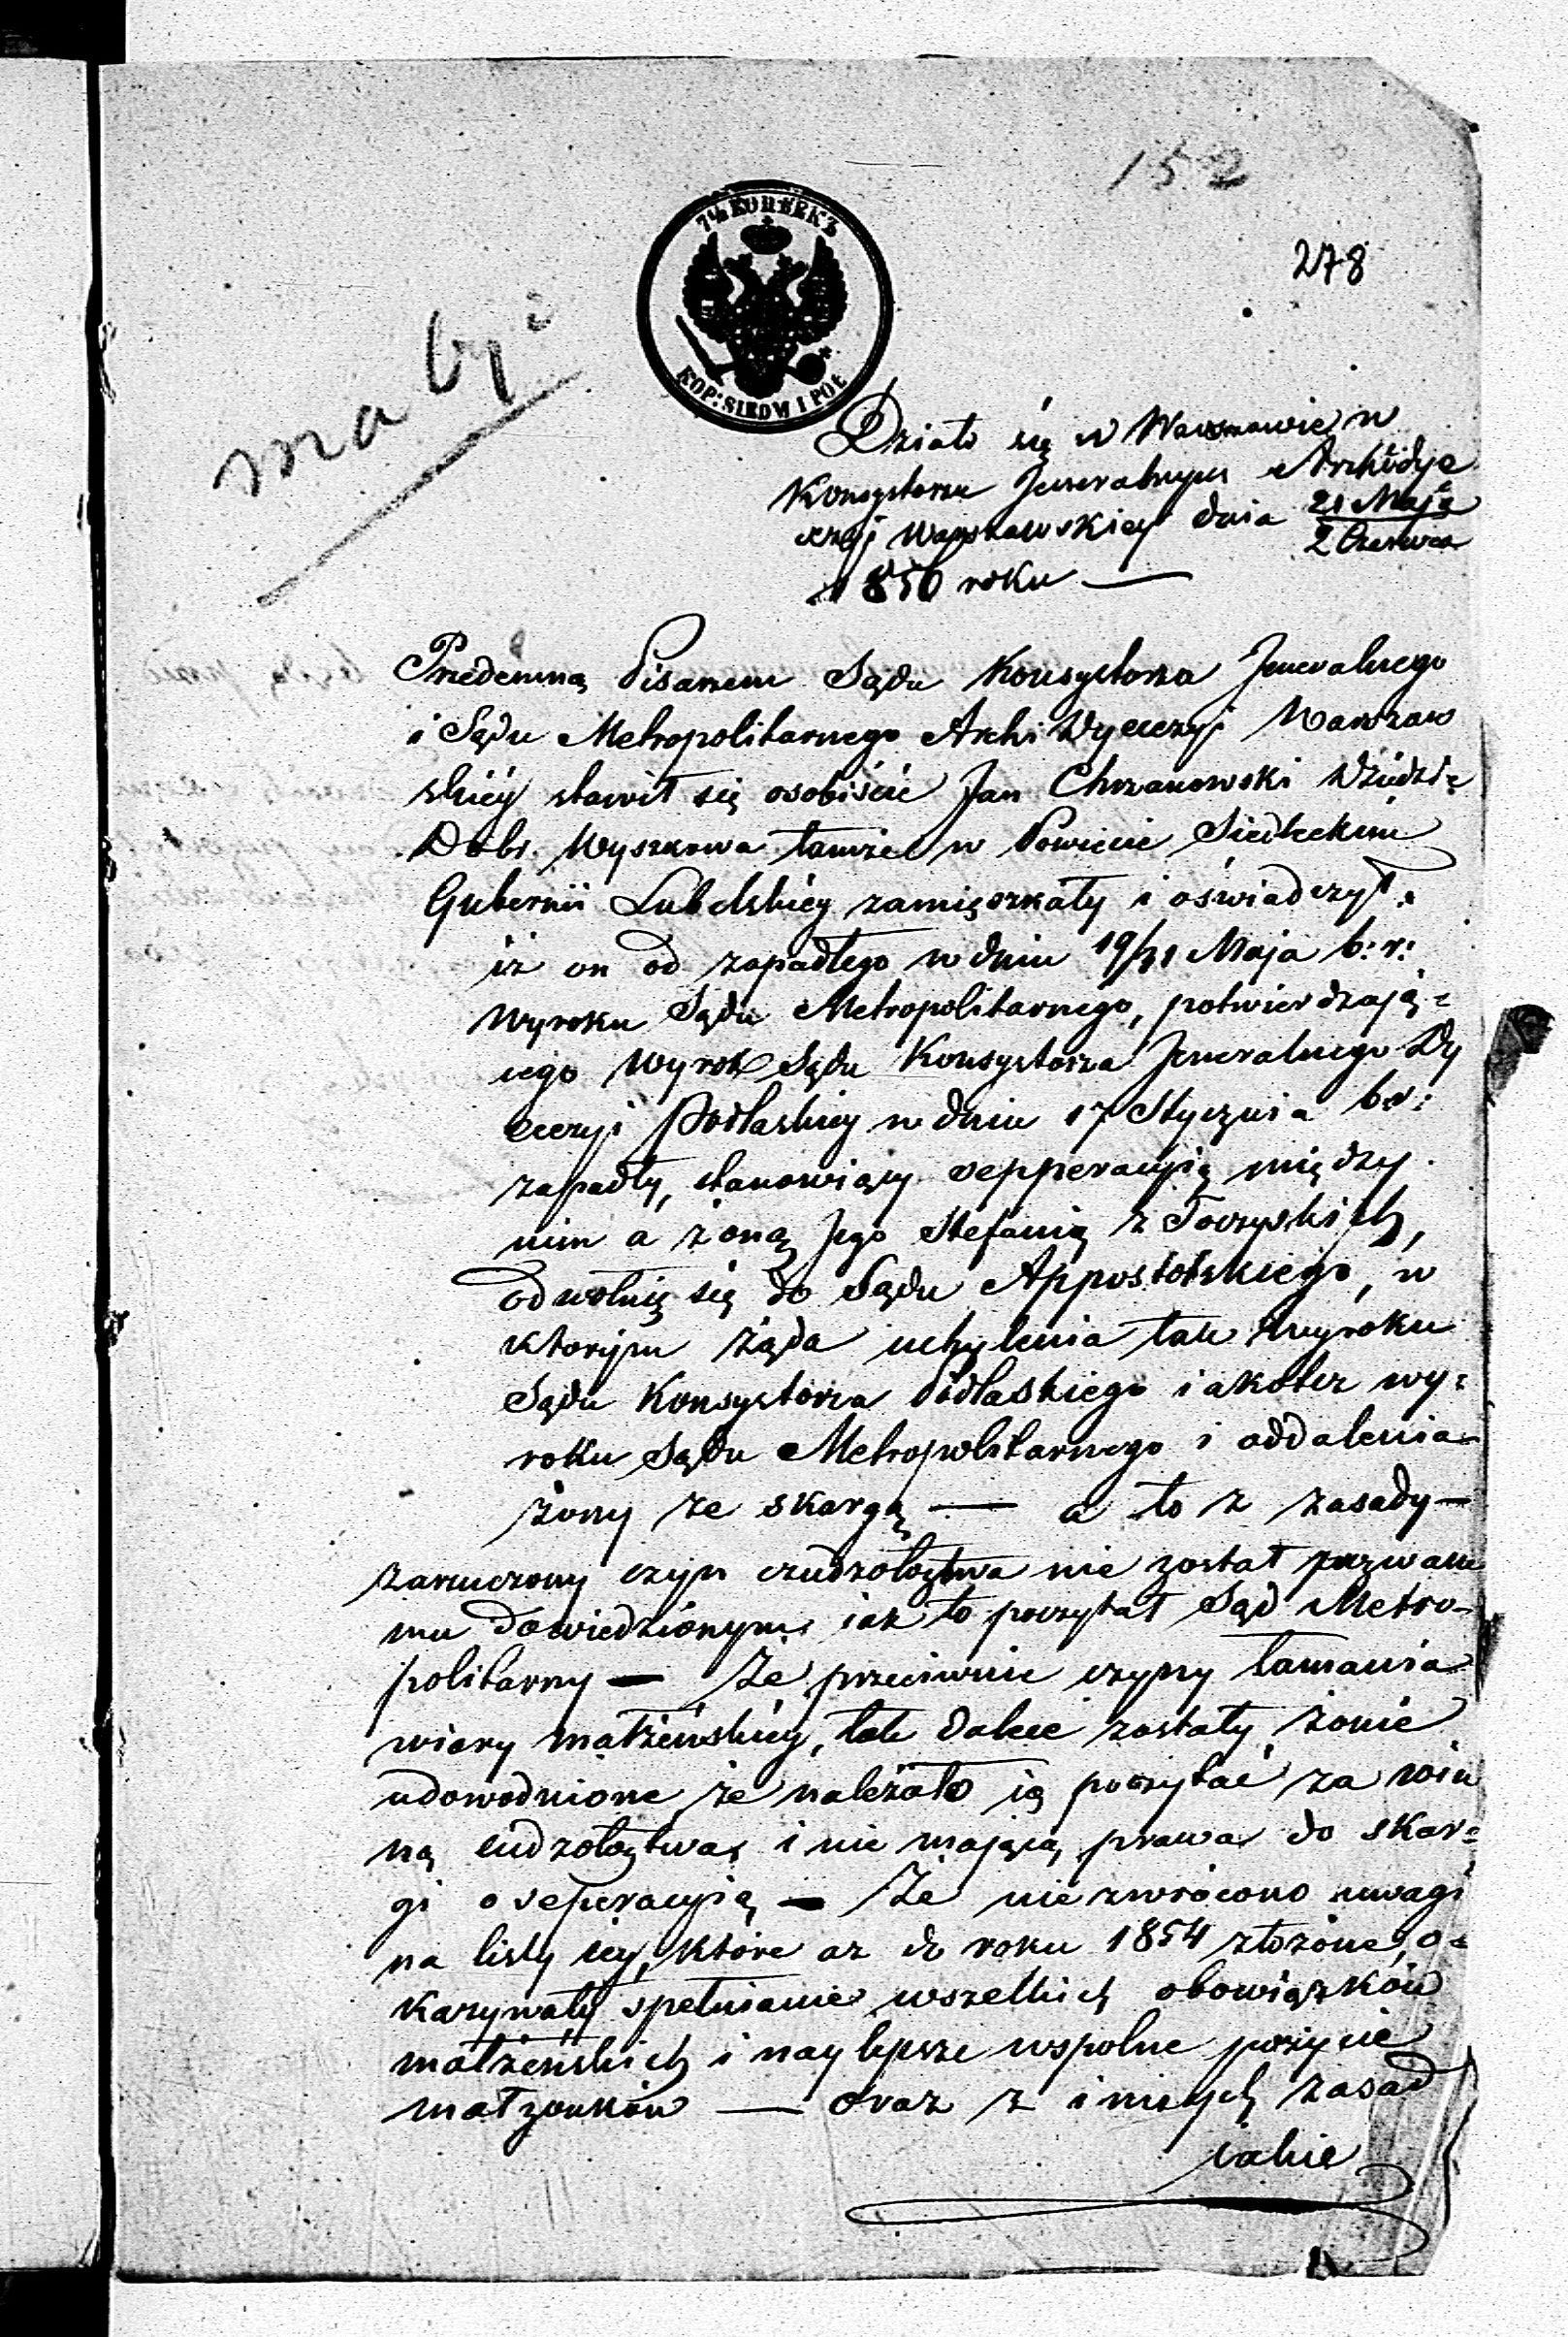 152
278
7½ КОПѢЕКЪ
KOP: SIEDM I PÓŁ
ma być
Działo się w Warszawie w
Konsystorzu Jeneralnym Archidye
cezyi Warszawskiey dnia 21 Maja
2 Czerwca
1856 roku —
Przedemną Pisarzem Sądu Konsystorza Jeneralnego
i Sądu Metropolitarnego Archi Dyecezyi Warszaw
skiéy stawił się osobiście Jan Chrzanowski Dziedzic
Dóbr Wyszkowa tamże w Powiecie Siedleckim
Gubernii Lubelskiéy zamięszkały i oświadczył:
iż on od zapadłego w dniu 19/31 Maja b: r:
Wyroku Sądu Metropolitarnego, potwierdzają=
cego Wyrok Sądu Konsystorza Jeneralnego Dy
ecezyi Podlaskiey w dniu 17 Stycznia b.r:
zapadły, stanowiący sepperacyią między
nim a żoną Jego Stefanią z Toczyskich,
odwołuie się do Sądu Appostolskiego, w
ktorym żąda uchylenia tak wyroku
Sądu Konsystorza Podlaskiego iakotez wy=
roku Sądu Metropolitarnego i oddalenia
żony ze skargą — a to z zasady —
zarzucony czyn cudzołoztwa nie został pozwane
mu dowiedzionym, iak to poczytał Sąd Metro-
politarny — Że przeciwnie czyny łamania
wiary małżeńskiéy, tak dalece zostały żonie
udowodnione że należało ią poczytać za win
ną cudzołoztwa, i nie mającą prawa do skar=
gi o seperacyią — Że nie zwrócono uwagi
na listy iey, które aż do roku 1854 złożone, o=
kazywały spełnianie wszelkich obowiązków
małżeńskich i naylepsze wspolne pożycie
małżonków — oraz z innych zasad
iakie